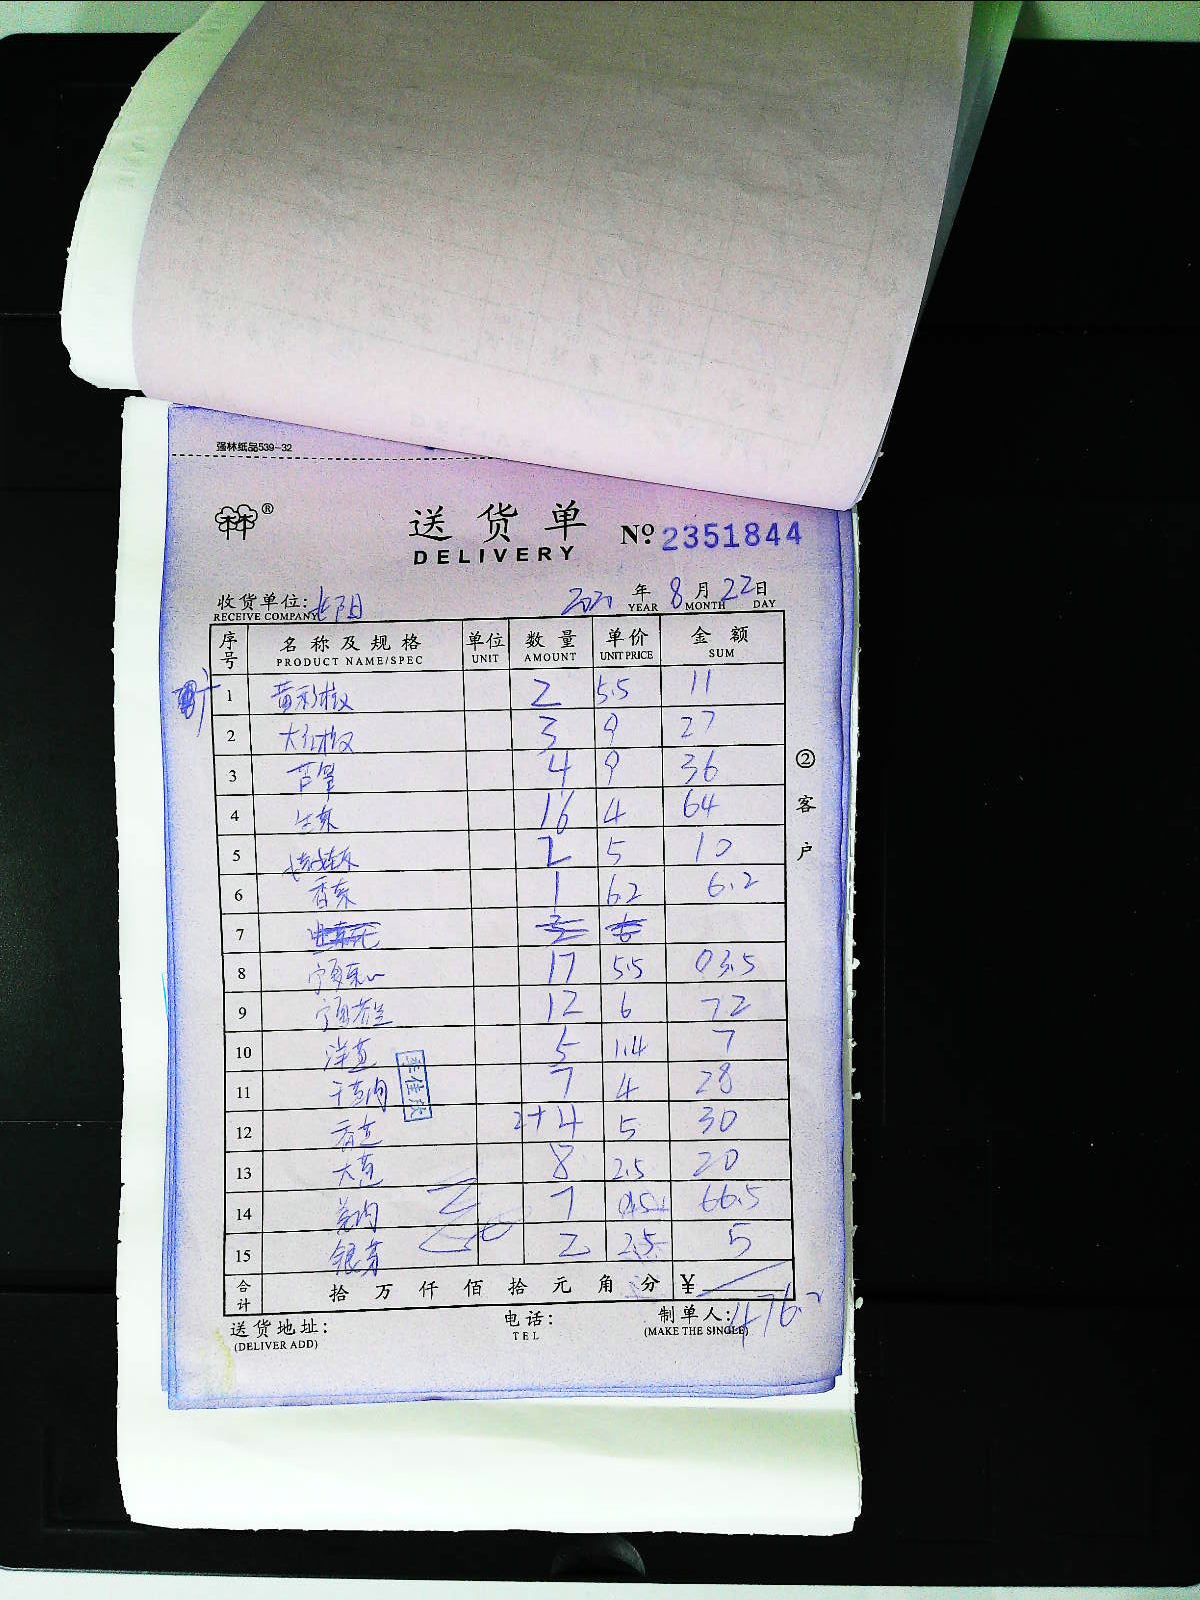 强林纸品539-32
林林®
送货单 No 2351844
DELIVERY
收货单位: 年 8 月 22 日
RECEIVE COMPANY YEAR MONTH DAY
序号 名称及规格 单位 数量 单价 金额
PRODUCT NAME/SPEC UNIT AMOUNT UNIT PRICE SUM
1 黄彩椒 2 5.5 11
2 大红椒 3 9 27
3 4 9 36
4 生菜 16 4 64
5 2 5 10
6 香菜 1 6.2 6.2
7
8 宁夏菜心 17 5.5 03.5
9 宁夏芥兰 12 6 72
10 洋葱 5 1.4 7
11 干葱肉 7 4 28
12 香芒 2+4 5 30
13 大葱 8 2.5 20
14 姜肉 7 66.5
15 银芽 2 2.5 5
合计 拾 万 仟 佰 拾 元 角 分 ¥
476.2
送货地址: 电话: 制单人:
(DELIVER ADD) TEL (MAKE THE SINGLE)
②客户